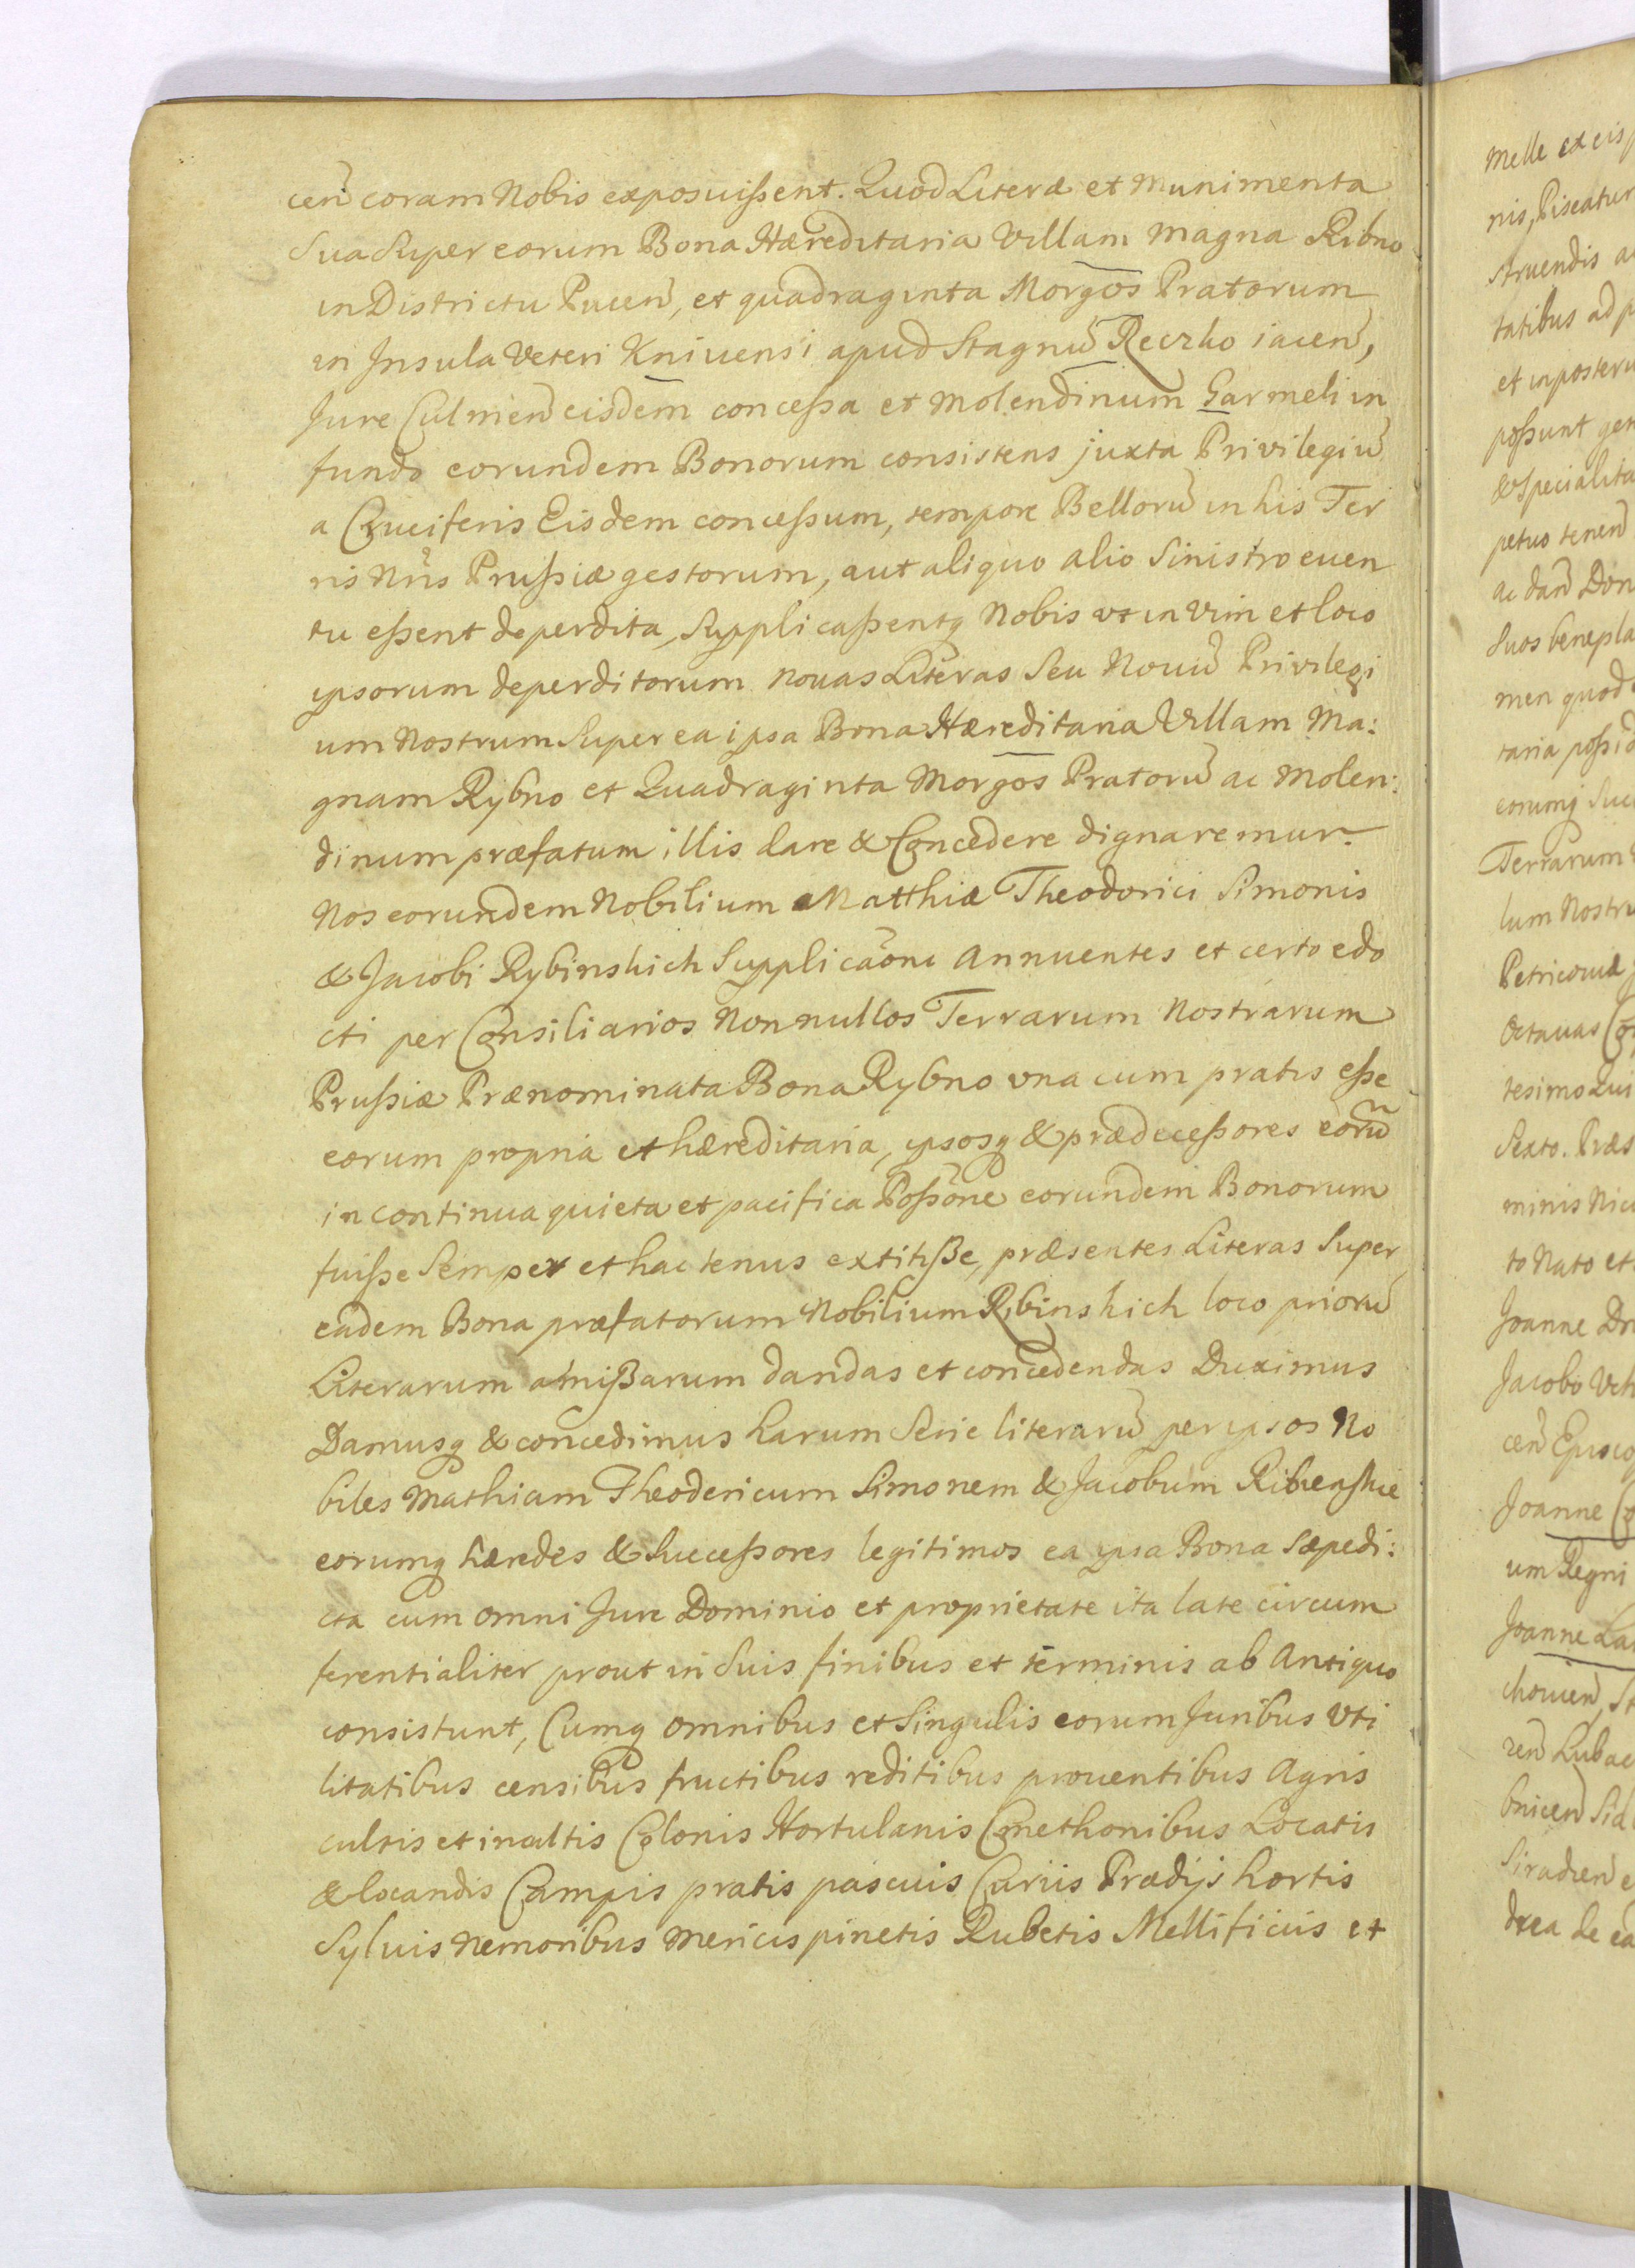 cen̄ coram Nobis exposuißent. Quod Literæ et Munimenta
Sua Super eorum Bona Hæreditaria Villam Magna Ribno
in Districtu Pucen̄, et quadraginta Morgos Pratorum
in Jnsula Veteri Kniuensi apud Stagnū Reczko iacen̄,
Jure Culmen̄ eisdem conceßa et Molendinum Garmeli in
fundo eorundem Bonorum consistens juxta Privilegiū
a Cruciferis Eisdem conceßum, tempore Bellorū in his Ter
ris Nr̄is Prußiæ gestorum, aut aliquo alio Sinistro euen
tu eßent deperdita, Supplicaßentq Nobis vt in Vim et loco
ipsorum deperditorum Nouas Literas Seu Nouū Privilegi
um Nostrum Super ea ipsa Bona Hæreditaria Villam Ma:
gnam Rybno et Quadraginta Morgos Pratorū ac Molen:
dinum præfatum illis dare & Concedere dignaremur.
Nos eorundem Nobilium Matthiæ Theodorici Simonis
& Jacobi Rybinskich Supplicaōni Annuentes et certo edo
cti per Consiliarios Nonnullos Terrarum Nostrarum
Prußiæ Prænominata Bona Rybno vna cum pratis eße
eorum propria et hæreditaria, ipsosq & prædeceßores eorū
in continua quieta et pacifica Poßōne eorundem Bonorum
fuiße Semper et hactenus extitiße, præsentes Literas Super
eadem Bona præfatorum Nobilium Ribinskich loco priorū
Literarum amißarum dandas et concedendas Duximus
Damusq & concedimus harum Serie literarū per ipsos No
biles Mathiam Theodericum Simonem & Jacobum Ribienskie
eorumq hæredes & Succeßores legitimos ea ipsa Bona Sæpedi:
cta cum omni Jure Dominio et proprietate ita late circum
ferentialiter prout in Suis finibus et terminis ab Antiquo
consistunt, Cumq omnibus et Singulis eorum Juribus Vti
litatibus censibus fructibus reditibus prouentibus Agris
cultis et incultis Colonis Hortulanis Cmethonibus Locatis
& locandis Campis pratis pascuis Curiis Prædijs hortis
Syluis Nemoribus Mericis pinetis Rubetis Mellificiis et
Melle ex eis
nis, Piscatur
struendis a
tatibus ad p
et inposteru
poßunt gen
& specialita
petuo tenen̄
ac dan̄ Don
Suos benepla
men quod
taria poßid
eorumq Suc
Terrarum
lum Nostru
Petricouiæ
Octauas Co
tesimo Qui
Sexto. Præs
minis Nico
to Nato et
Joanne Dr
Jacobo Uch
cen̄ Episco
Joanne Co
um Regni
Joanne La
chouien̄, St
ren̄ Lubac
bnicen̄ Sid
Siradien̄ e
drea de